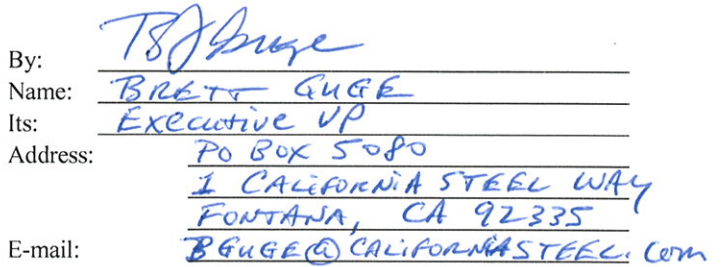 By: BJGuge
Name: BRETT GUGE
Its: Executive VP
Address: PO BOX 5080
1 CALIFORNIA STEEL WAY
FONTANA, CA 92335
E-mail: BGUGE@CALIFORNIASTEEL.COM